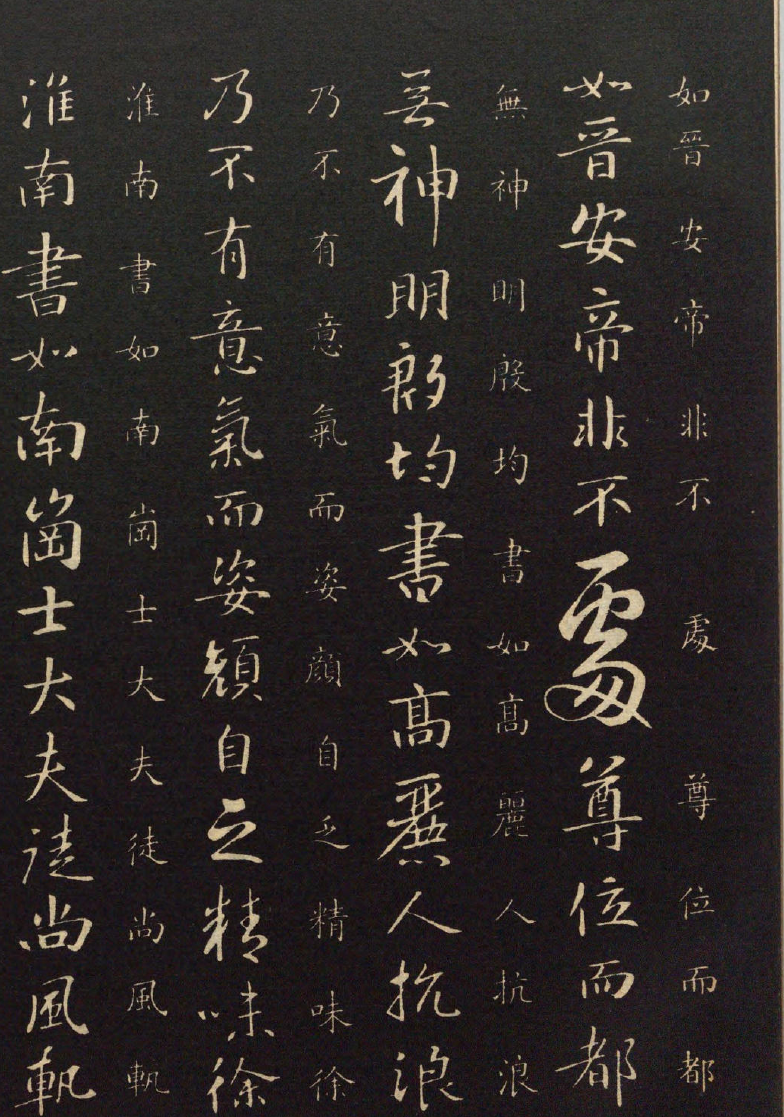 如晉安帝非不處尊位而都
如晉安帝非不處尊位而都
無神明殷均書如高麗人抗浪
無神明殷均書如高麗人抗浪
乃不有意氣而姿顔自乏精味徐
乃不有意氣而姿顔自乏精味徐
淮南書如南崗士大夫徒尚風軌
淮南書如南崗士大夫徒尚風軌